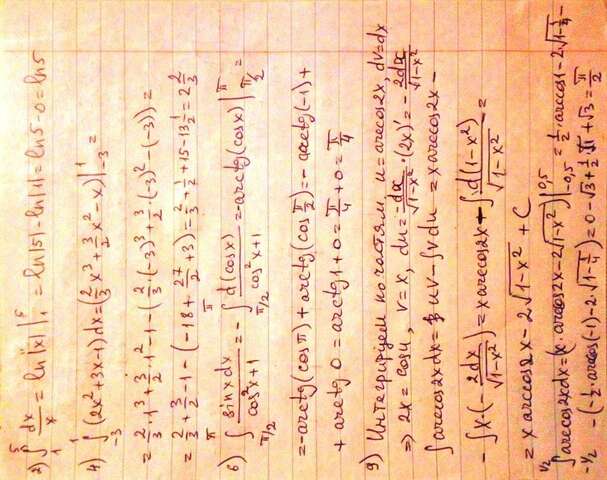 2) ∫₁⁵ dx/x = ln|x| |₁⁵ = ln|5| - ln|1| = ln5 - 0 = ln5
4) ∫₋₃¹ (2x²+3x-1)dx = (2/3 x³ + 3/2 x² - x) |₋₃¹ =
= 2/3 · 1³ + 3/2 · 1² - 1 - (2/3 (-3)³ + 3/2 · (-3)² - (-3)) =
= 2/3 + 3/2 - 1 - (-18 + 27/2 + 3) = 2/3 + 1/2 + 15 - 13 1/2 = 2 2/3
6) ∫_{π/2}^π sinx dx / cos²x+1 = - ∫_{π/2}^π d(cosx) / cos²x+1 = -arctg(cosx) |_{π/2}^π =
= -arctg(cosπ) + arctg(cos π/2) = -arctg(-1) +
+ arctg 0 = arctg1 + 0 = π/4 + 0 = π/4
9) Интегрируем по частям, u = arccos2x, dv = dx
⇒ 2x = cosu, v = x, du = -dx/√1-x² · (2x)' = - 2dx/√1-x²
∫ arccos2x dx = uv - ∫ v du = x arccos2x -
- ∫ x · (- 2dx/√1-x²) = x arccos2x - ∫ d(1-x²)/√1-x² =
= x arccos2x - 2√1-x² + C
∫_{-1/2}^{1/2} arccos2x dx = (x · arccos2x - 2√1-x²) |_{-0,5}^{0,5} = 1/2 · arccos1 - 2√1-1/4 -
- (-1/2 · arccos(-1) - 2·√1-1/4) = 0 - √3 + 1/2 π + √3 = π/2